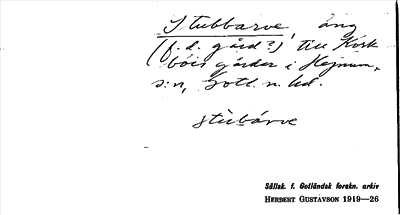 Stubbarve äng
(f.d. gård?) till Kyrk
bóis gårder i Hejnum,
s:n, Gotl. n. hd.
stùbárve
Sällsk. f. Gotländsk forskn. arkiv
HERBERT GUSTAVSON 1919—26